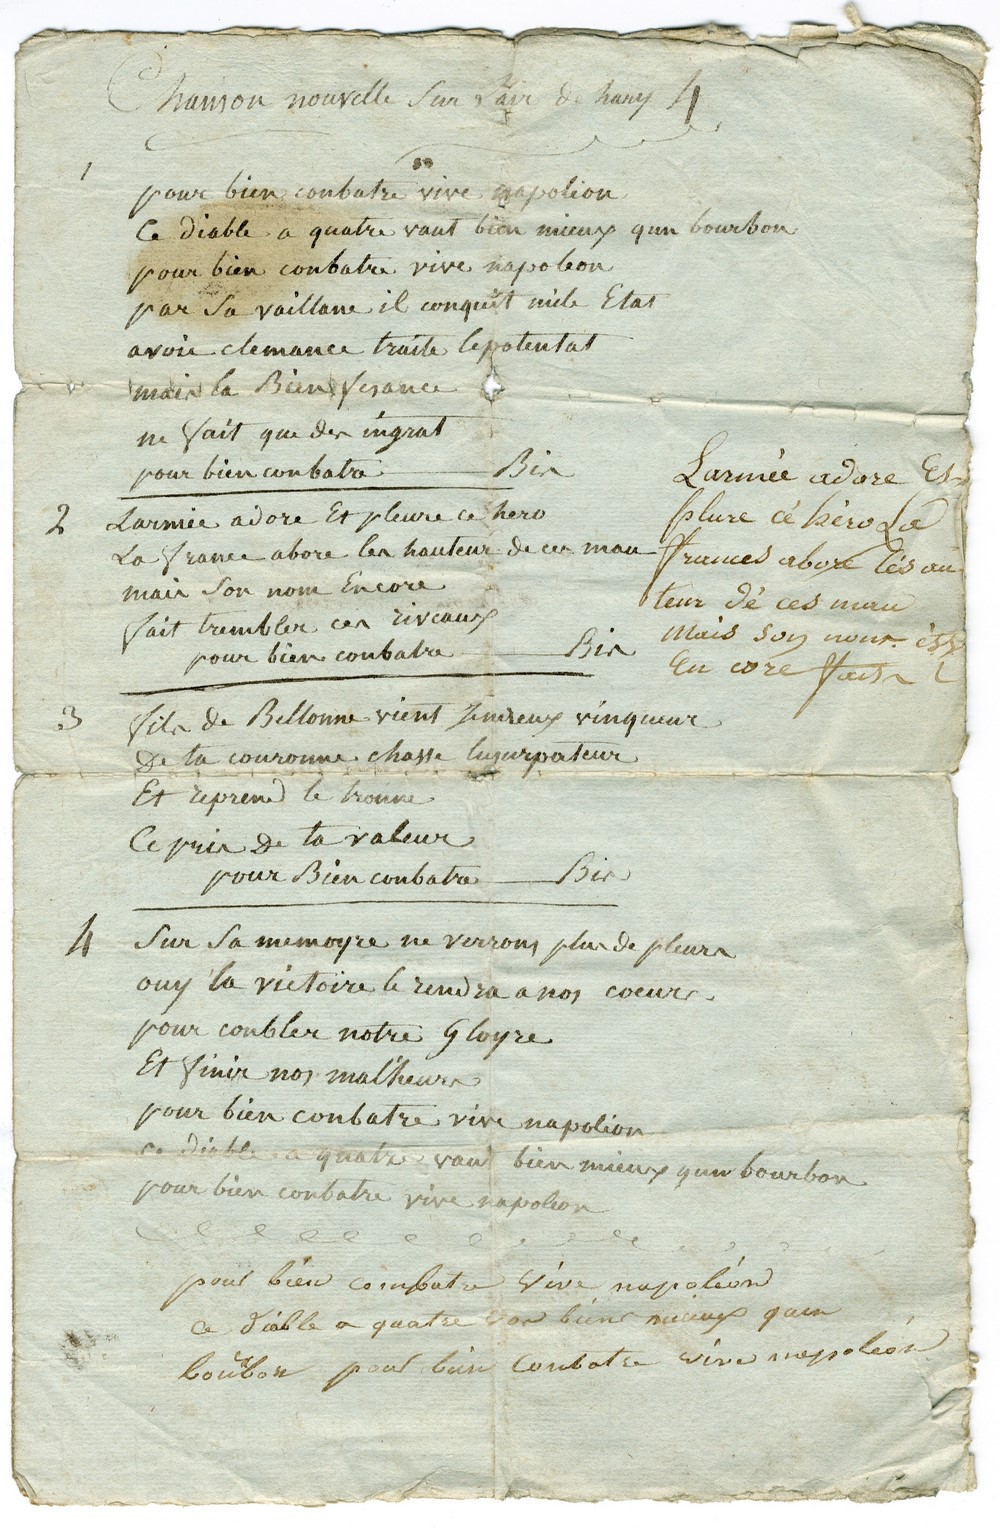 Chanson nouvelle sur l'air de hary 4
1
pour bien conbatre vive napoleon
Ce diable a quatre vaut bien mieux qun bourbon
pour bien conbatre vive napoleon
par sa vaillane il conquêt mile Etat
avoie clemance traite lepotentat
mais la Bien fesance
ne fait que des ingrat
pour bien conbatre Bis
2 Larmée adore Et pleure ce hero
La france abore les hauteur de ces mau
mais son nom Encore
fait trembler ces riveaux
pour bien conbatre Bis
Larmée adore Et
plure cé héro La
frances abore lés au
teur dé ces mau
mais son nom
En core fait
3 fils de Bellonne vient vinqueur
De ta couronne chasse lusurpateur
Et reprend le tronne
Ce pris de ta valeur
pour Bien conbatre Bis
4 Sur Sa memoyre ne verrons plus de pleurs
ouy la victoire le rendra a nos coeurs
pour conbler notre Gloyre
Et finir nos malheurs
pour bien conbatre vive napoleon
ce diable a quatre vaut bien mieux qun bourbon
pour bien conbatre vive napoleon
pour bién combatre vive napoléon
ce diable a quatre bien mieux quen
bourbon pour bien Conbatre vive napoléon